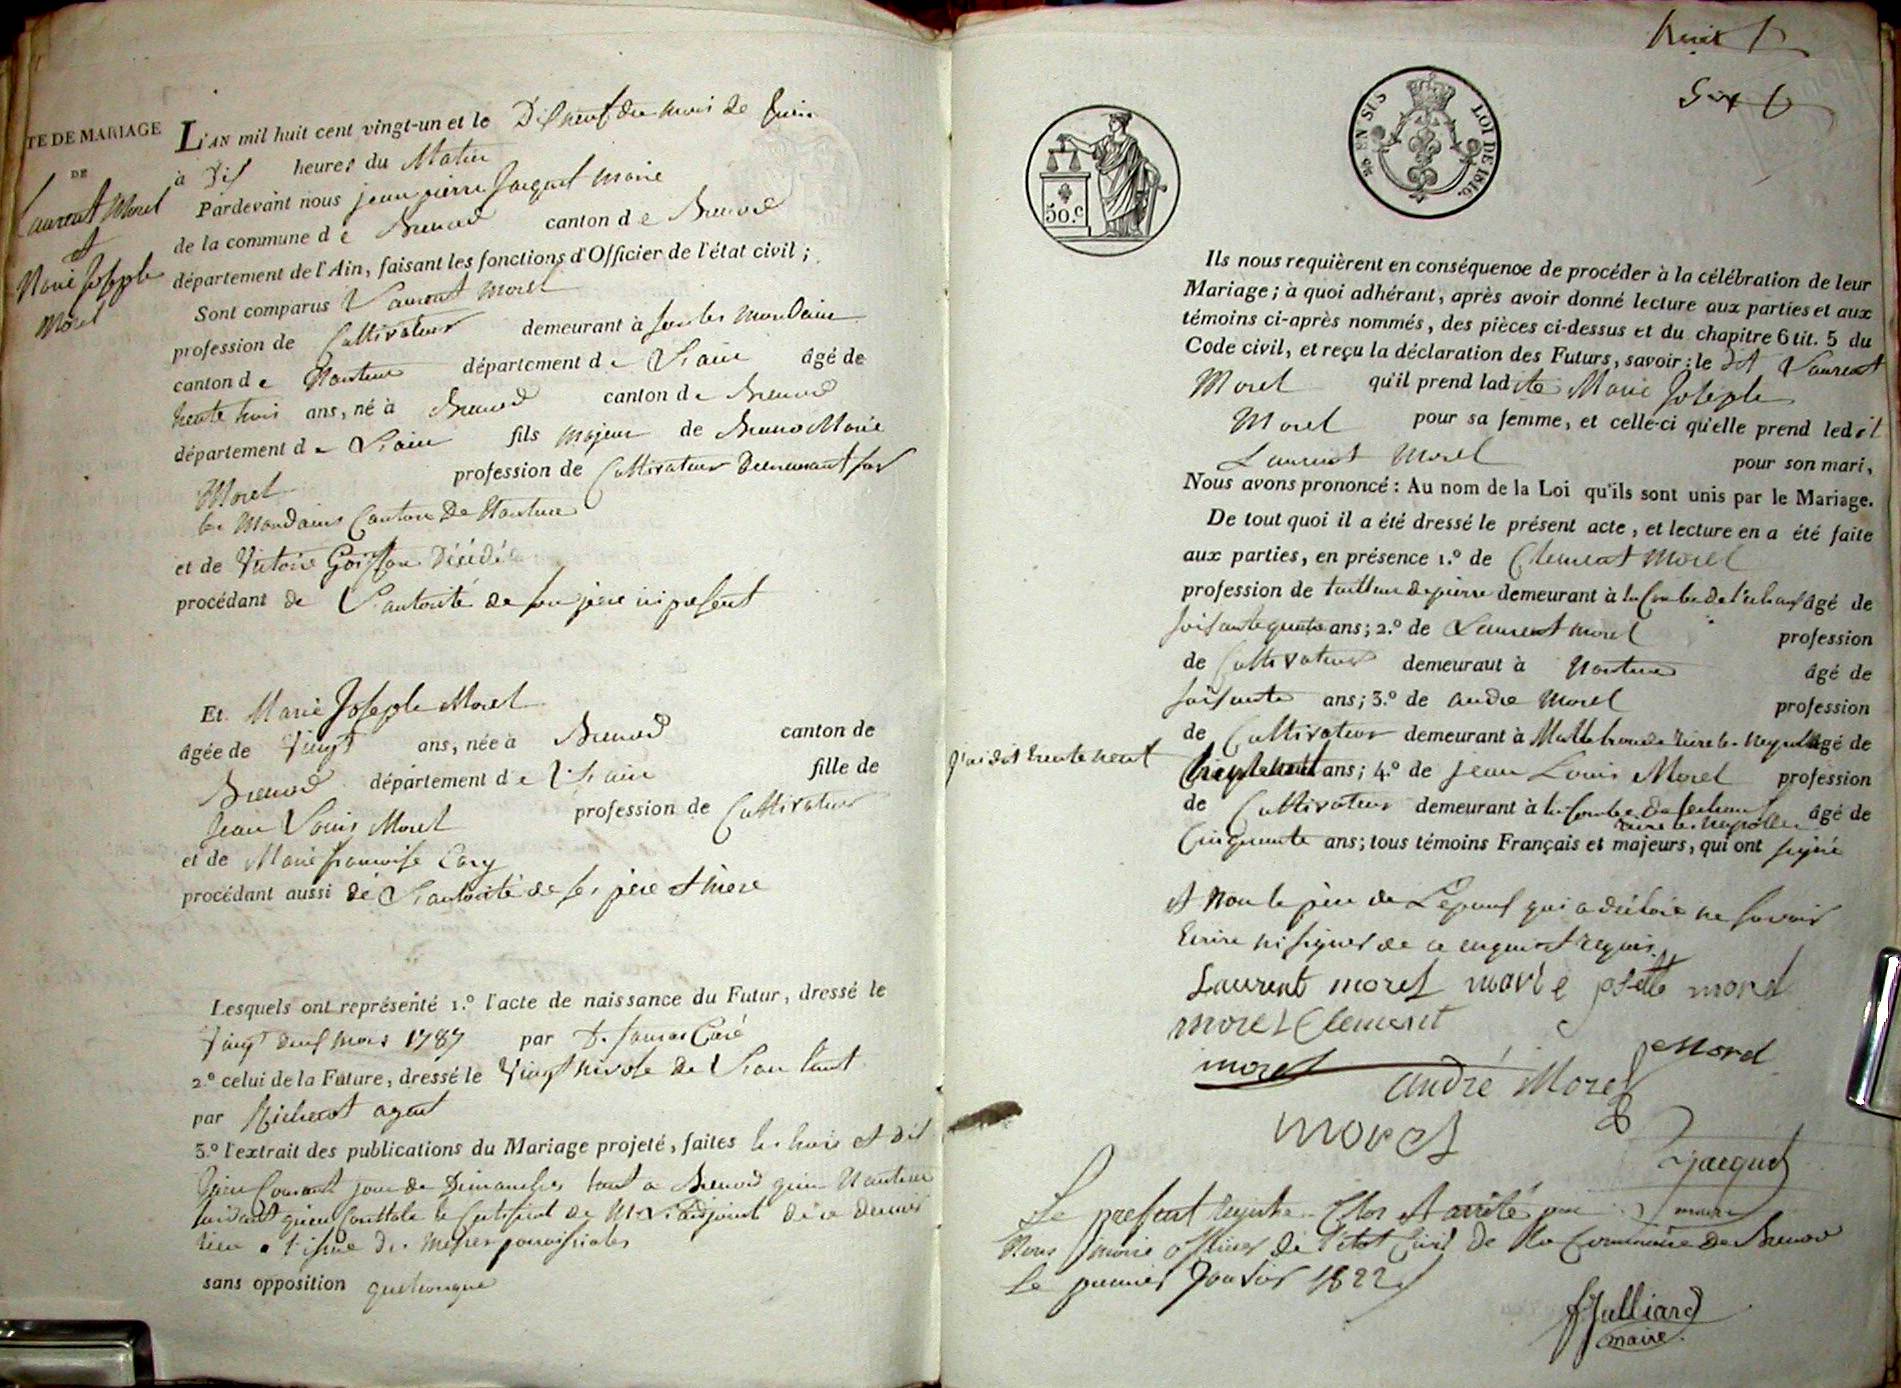 TE DE MARIAGE
DE
Laurent Morel
et
Marie Josephe
Morel
L'AN mil huit cent vingt-un et le Dixneuf du mois de Juin
à Dix heures du Matin
Pardevant nous jean pierre Jacquet maire
de la commune de Brenod canton de Brenod
département de l'Ain, faisant les fonctions d'Officier de l'état civil;
Sont comparus Laurent Morel
profession de Cultivateur demeurant à
canton de Nantua département de L'ain âgé de
trente trois ans, né à Brenod canton de Brenod
département de L'ain fils majeur de Bruno Marie
Morel profession de Cultivateur Demeurant sur
les Mondains Canton De Nantua
et de Victoire Décédée
procédant de L'autorité de son père ici présent
Et Marie Josephe Morel
âgée de Vingt ans, née à Brenod canton de
Brenod département de L'ain fille de
Jean Louis Morel profession de Cultivateur
et de Marie françoise
procédant aussi de L'autorité de ses père et mere
Lesquels ont représenté 1.º l'acte de naissance du Futur, dressé le
Vingt neuf mars 1787 par Curé
2.º celui de la Future, dressé le Vingt nivose de L'an huit
par agent
3.º l'extrait des publications du Mariage projeté, faites les trois et dix
Juin Courant jour de Dimanches tant a Brenod qu'en Nantua
le Certificat de Mr L'adjoint de ce dernier
lieu a l'issue des Messes paroissiales
sans opposition quelconque
huit
Six 6
50.c
EN SUS LOI DE 1816.
Ils nous requièrent en conséquence de procéder à la célébration de leur
Mariage; à quoi adhérant, après avoir donné lecture aux parties et aux
témoins ci-après nommés, des pièces ci-dessus et du chapitre 6 tit. 5 du
Code civil, et reçu la déclaration des Futurs, savoir: le dit Laurent
Morel qu'il prend ladite Marie Josephe
Morel pour sa femme, et celle-ci qu'elle prend ledit
Laurent Morel pour son mari,
Nous avons prononcé: Au nom de la Loi qu'ils sont unis par le Mariage.
De tout quoi il a été dressé le présent acte, et lecture en a été faite
aux parties, en présence 1.º de Clement Morel
profession de tailleur de pierre demeurant à la Combe de âgé de
soixante quatre ans; 2.º de Laurent morel profession
de Cultivateur demeuraut à Nantua âgé de
soixante ans; 3.º de andre Morel profession
de Cultivateur demeurant à âgé de
j'ai dit trente neuf
ans; 4.º de Jean Louis Morel profession
de Cultivateur demeurant à la Combe âgé de
Cinquante ans; tous témoins Français et majeurs, qui ont signé
et Non le père de L'epoux qui a déclaré ne savoir
Ecrire ni signer de ce enquis et requis
Laurent morel marie morel
morel Clement
morel Morel
andré Morel
morel
Jacquet
maire
Le présent registre Clos et arrêté par
Nous maire officier de l'état Civil de la Commune De Brenod
Le premier Janvier 1822
Julliard
maire.